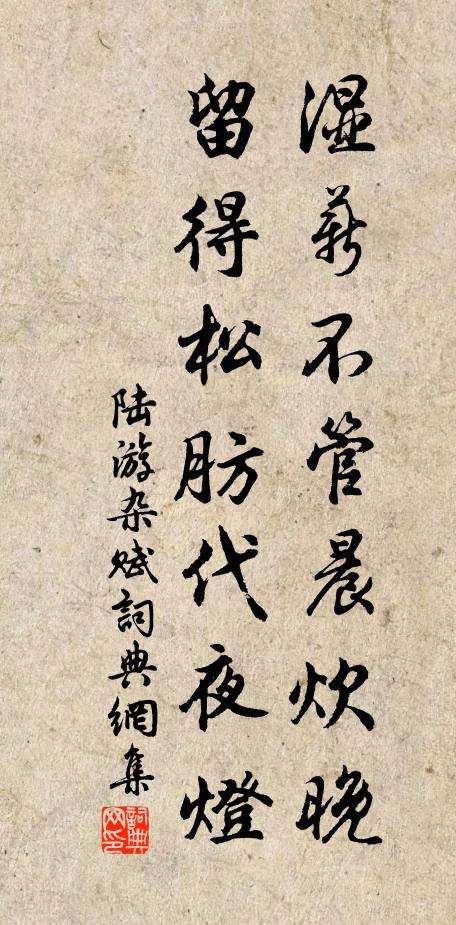 湿薪不管晨炊晚
留得松肪代夜燈
陆游杂赋詞典網集
詞典网印